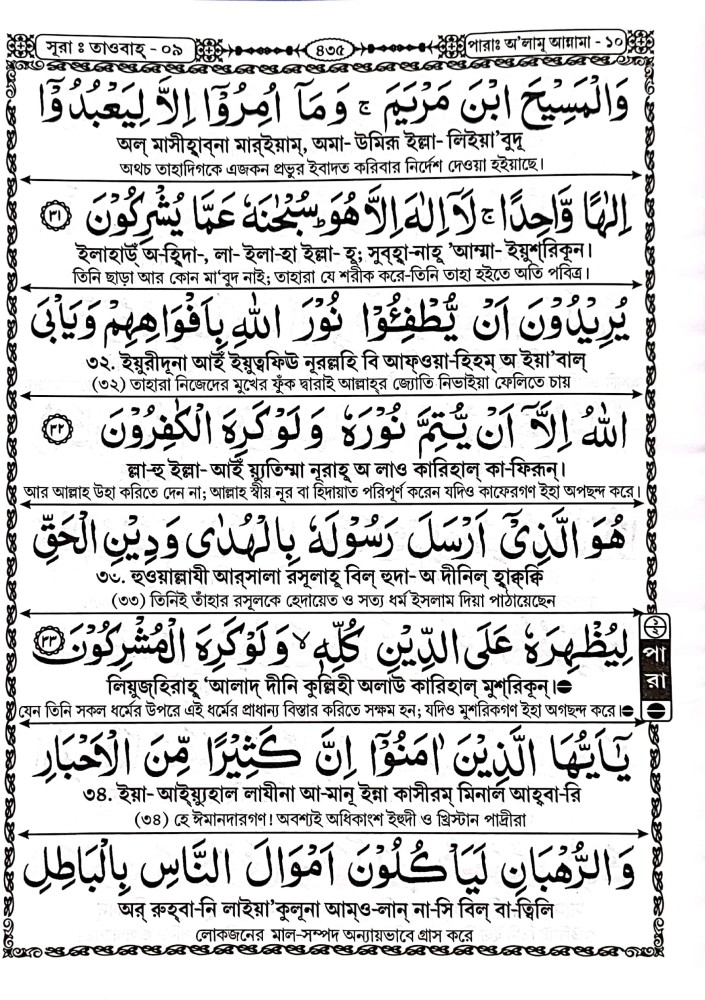 সূরা ঃ তাওবাহ্ - ০৯
৪৩৫
পারাঃ অ'লামূ আন্নামা - ১০
وَالْمَسِيْحَ ابْنَ مَرْيَمَ ۚ وَمَآ اُمِرُوْٓا اِلَّا لِيَعْبُدُوْٓا
অল্ মাসীহাব্না মার্‌ইয়াম্, অমা- উমিরূ ইল্লা- লিইয়া'বুদূ
অথচ তাহাদিগকে এজকন প্রভুর ইবাদত করিবার নির্দেশ দেওয়া হইয়াছে।
اِلٰهًا وَّاحِدًا ۚ لَآ اِلٰهَ اِلَّا هُوَ ؕ سُبْحٰنَهٗ عَمَّا يُشْرِكُوْنَ ﴿٣١﴾
ইলাহাউঁ অ-হিদা-, লা- ইলা-হা ইল্লা- হূ; সুব্‌হা-নাহূ 'আম্মা- ইয়ুশ্‌রিকূন।
তিনি ছাড়া আর কোন মা'বুদ নাই; তাহারা যে শরীক করে-তিনি তাহা হইতে অতি পবিত্র।
يُرِيْدُوْنَ اَنْ يُّطْفِـُٔوْا نُوْرَ اللّٰهِ بِاَفْوَاهِهِمْ وَيَاْبَى
৩২. ইয়ুরীদূনা আইঁ ইয়ুত্বফিঊ নূরল্লহি বি আফ্ওয়া-হিহিম্ অ ইয়া'বাল্
(৩২) তাহারা নিজেদের মুখের ফুঁক দ্বারাই আল্লাহ্‌র জ্যোতি নিভাইয়া ফেলিতে চায়
اللّٰهُ اِلَّآ اَنْ يُّتِمَّ نُوْرَهٗ وَلَوْ كَرِهَ الْكٰفِرُوْنَ ﴿٣٢﴾
ল্লা-হু ইল্লা- আইঁ য়্যুতিম্মা নূরাহূ অ লাও কারিহাল্ কা-ফিরূন্।
আর আল্লাহ উহা করিতে দেন না; আল্লাহ স্বীয় নূর বা হিদায়াত পরিপূর্ণ করেন যদিও কাফেরগণ ইহা অপছন্দ করে।
هُوَ الَّذِيْٓ اَرْسَلَ رَسُوْلَهٗ بِالْهُدٰى وَدِيْنِ الْحَقِّ
৩৩. হুওয়াল্লাযী আর্‌সালা রসূলাহূ বিল্ হুদা- অ দীনিল্ হাক্বক্বি
(৩৩) তিনিই তাঁহার রসূলকে হেদায়েত ও সত্য ধর্ম ইসলাম দিয়া পাঠায়েছেন
لِيُظْهِرَهٗ عَلَى الدِّيْنِ كُلِّهٖ ۙ وَلَوْ كَرِهَ الْمُشْرِكُوْنَ ﴿٣٣﴾
লিয়ুজ্‌হিরাহূ 'আলাদ্ দীনি কুল্লিহী অলাউ কারিহাল্ মুশ্‌রিকূন্।
যেন তিনি সকল ধর্মের উপরে এই ধর্মের প্রাধান্য বিস্তার করিতে সক্ষম হন; যদিও মুশরিকগণ ইহা অগছন্দ করে।
পারা
يٰٓاَيُّهَا الَّذِيْنَ اٰمَنُوْٓا اِنَّ كَثِيْرًا مِّنَ الْاَحْبَارِ
৩৪. ইয়া- আইয়্যুহাল লাযীনা আ-মানূ ইন্না কাসীরম্ মিনাল আহ্‌বা-রি
(৩৪) হে ঈমানদারগণ! অবশ্যই অধিকাংশ ইহুদী ও খ্রিস্টান পাদ্রীরা
وَالرُّهْبَانِ لَيَاْكُلُوْنَ اَمْوَالَ النَّاسِ بِالْبَاطِلِ
অর্ রুহ্‌বা-নি লাইয়া'কুলূনা আম্‌ও-লান্ না-সি বিল্ বা-ত্বিলি
লোকজনের মাল-সম্পদ অন্যায়ভাবে গ্রাস করে